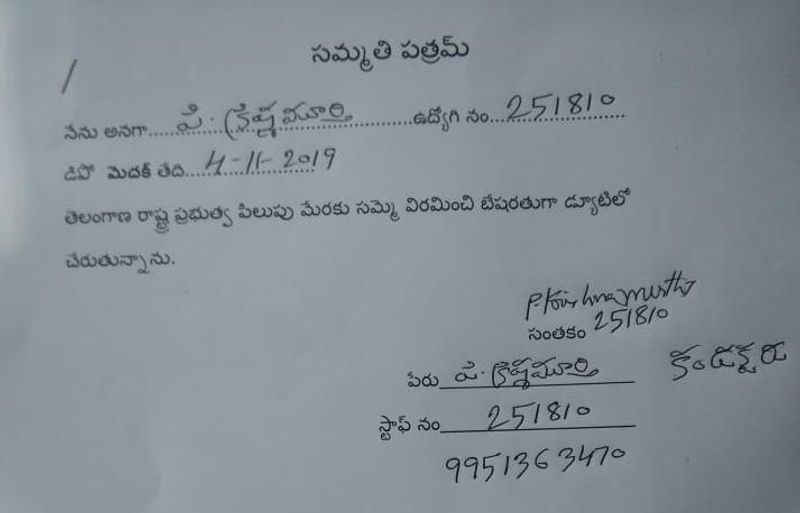 సమ్మతి పత్రమ్
/
నేను అనగా..... పి. క్రిష్ణమూర్తి .....ఉద్యోగి నం... 251810
డిపో మెదక్ తేది..... 4-11-2019
తెలంగాణ రాష్ట్ర ప్రభుత్వ పిలుపు మేరకు సమ్మె విరమించి బేషరతుగా డ్యూటిలో
చేరుతున్నాను.
P. Krishnamurthy
సంతకం 251810
పేరు పి. క్రిష్ణమూర్తి కండక్టరు
స్టాఫ్ నం 251810
9951363470